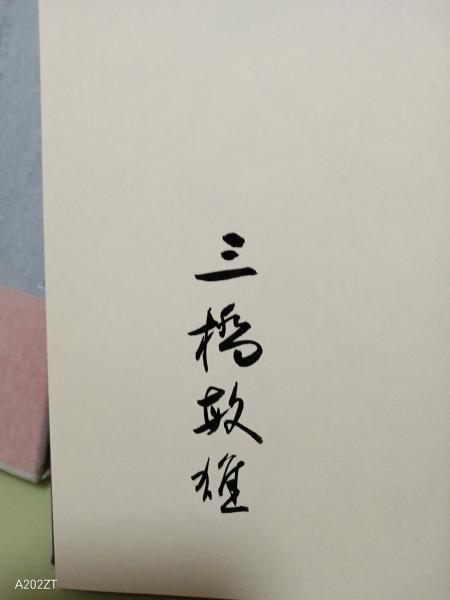 三橋敏雄
A202ZT